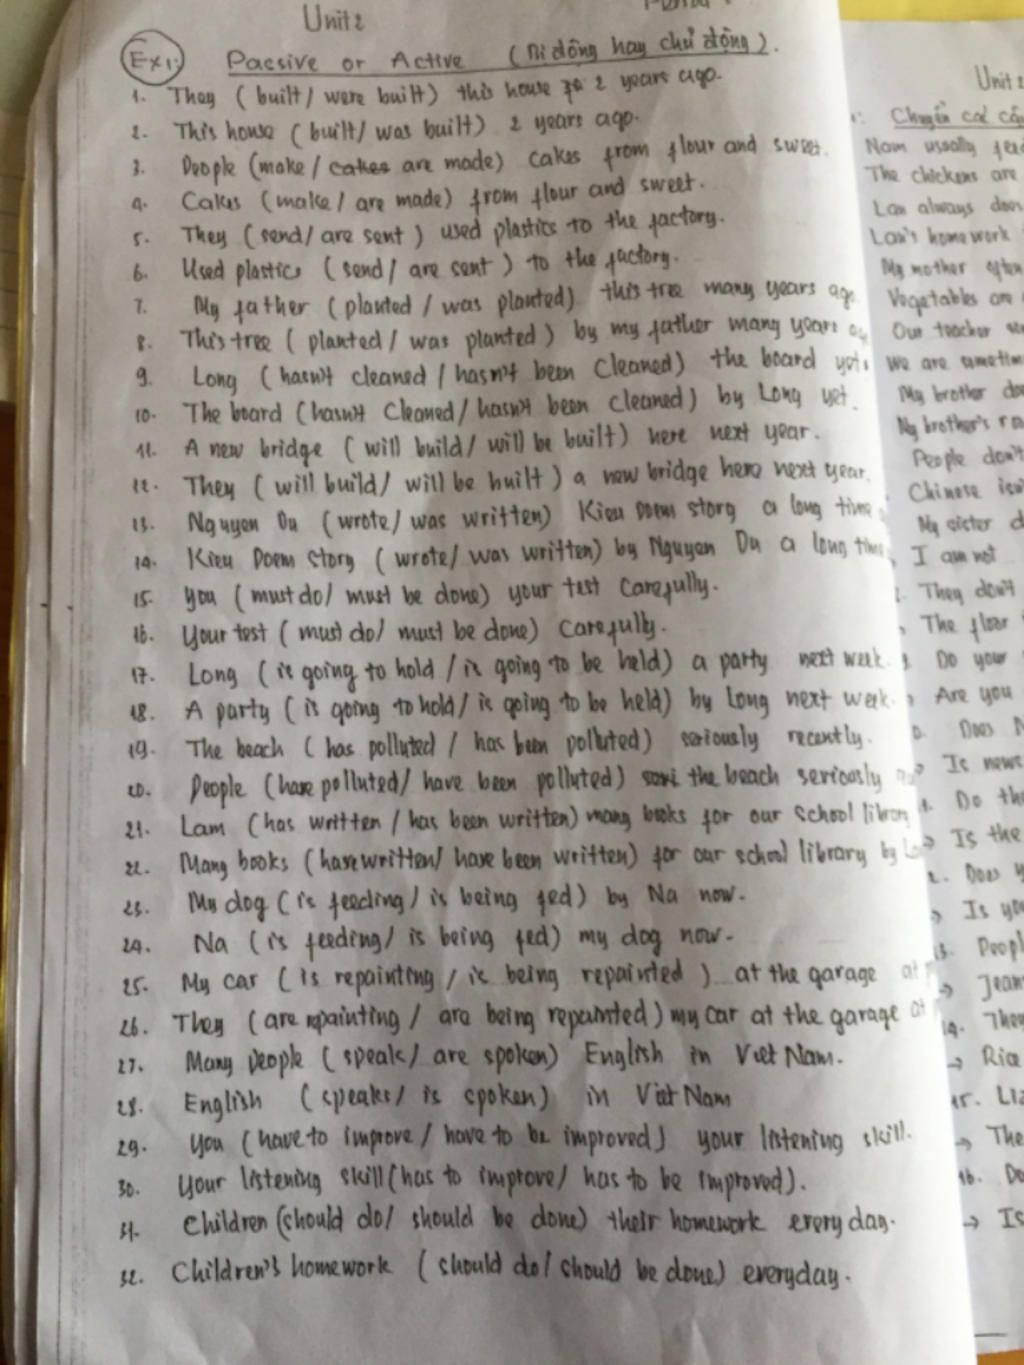 Unit 2
Ex1: Passive or Active (Bị động hay chủ động).
1. They (built/ were built) this house 2 years ago.
2. This house (built/ was built) 2 years ago.
3. People (make/ cakes are made) cakes from flour and sweet.
4. Cakes (make/ are made) from flour and sweet.
5. They (send/ are sent) used plastics to the factory.
6. Used plastics (send/ are sent) to the factory.
7. My father (planted / was planted) this tree many years ago
8. This tree (planted/ was planted) by my father many years
9. Long (hasn't cleaned / hasn't been cleaned) the board yet.
10. The board (hasn't cleaned/ hasn't been cleaned) by Long yet.
11. A new bridge (will build/ will be built) here next year.
12. They (will build/ will be built) a new bridge here next year.
13. Nguyen Du (wrote/ was written) Kieu Poem story a long time
14. Kieu Poem Story (wrote/ was written) by Nguyen Du a long time
15. You (must do/ must be done) your test carefully.
16. Your test (must do/ must be done) carefully.
17. Long (is going to hold / is going to be held) a party next week.
18. A party (is going to hold/ is going to be held) by Long next week.
19. The beach (has polluted / has been polluted) seriously recently.
20. People (have polluted/ have been polluted) the beach seriously
21. Lam (has written / has been written) many books for our school library
22. Many books (have written/ have been written) for our school library by
23. My dog (is feeding/ is being fed) by Na now.
24. Na (is feeding/ is being fed) my dog now.
25. My car (is repainting / is being repainted) at the garage at
26. They (are repainting / are being repainted) my car at the garage at
27. Many people (speak/ are spoken) English in Viet Nam.
28. English (speaks/ is spoken) in Viet Nam
29. You (have to improve / have to be improved) your listening skill.
30. Your listening skill (has to improve/ has to be improved).
31. Children (should do/ should be done) their homework every day.
32. Children's homework (should do/ should be done) everyday.
Unit 2
Chuyển các câ
Nam usually
The chickens are
Lan always
Lan's homework
My mother often
Vegetables are
Our teacher
We are sometim
My brother
My brother's
People don't
Chinese isn'
My sister
I am not
They don't
The floor
Do your
Are you
Does
Is news
Do the
Is the
Does
Is you
Peopl
Jean
They
Rice
15.
The
16. Do
→ Is